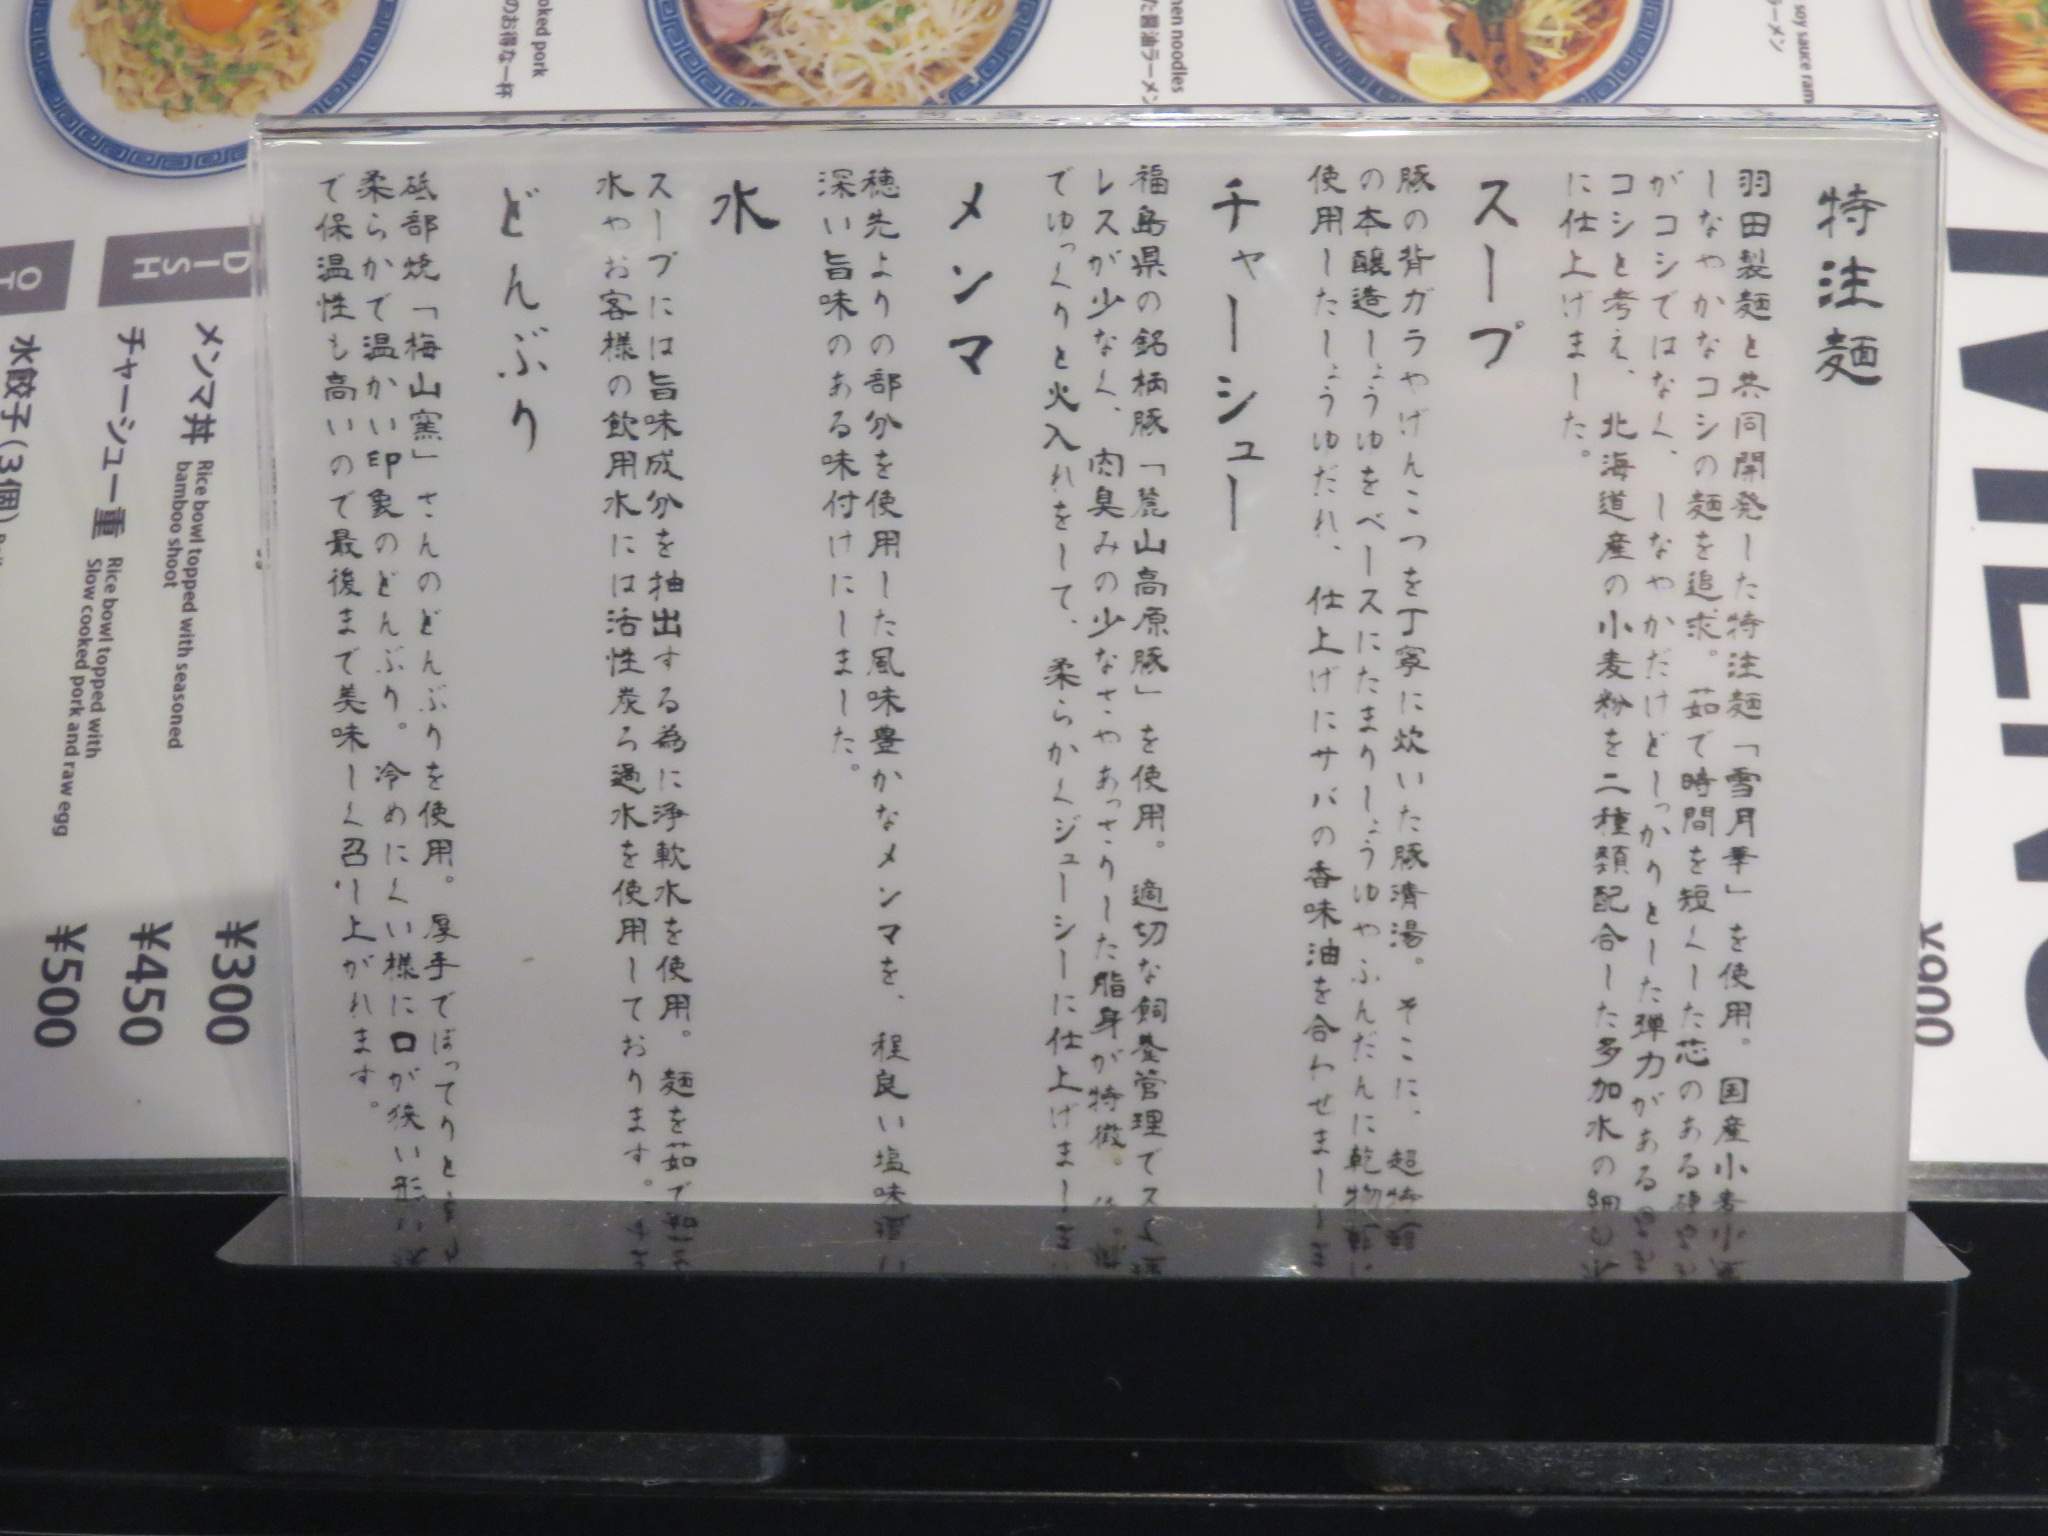 特注麺
羽田製麺と共同開発した特注麺「雪月華」を使用。国産小麦
しなやかなコシの麺を追求。茹で時間を短くした芯のある硬
がコシではなく、しなやかだけどしっかりとした弾力がある
コシと考え、北海道産の小麦粉を二種類配合した多加水の細
に仕上げました。
スープ
豚の背ガラやげんこつを丁寧に炊いた豚清湯。そこに、超特
の本醸造しょうゆをベースにたまりしょうゆやふんだんに乾物
使用したしょうゆだれ、仕上げにサバの香味油を合わせまし
チャーシュー
福島県の銘柄豚「麓山高原豚」を使用。適切な飼養管理でスト
レスが少なく、肉臭みの少なさやあっさりした脂身が特徴。
でゆっくりと火入れをして、柔らかくジューシーに仕上げまし
メンマ
穂先よりの部分を使用した風味豊かなメンマを、程良い塩味
深い旨味のある味付けにしました。
水
スープには旨味成分を抽出する為に浄軟水を使用。麺を茹で
水やお客様の飲用水には活性炭ろ過水を使用しております。
どんぶり
砥部焼「梅山窯」さんのどんぶりを使用。厚手でぽってりと
柔らかで温かい印象のどんぶり。冷めにくい様に口が狭い形
で保温性も高いので最後まで美味しく召し上がれます。
oked pork
のお得な一杯
men noodles
た醤油ラーメン
soy sauce ram
ーメン
DISH
メンマ丼
Rice bowl topped with seasoned
bamboo shoot
¥300
チャーシュー重
Rice bowl topped with
Slow cooked pork and raw egg
¥450
OT
水餃子(3個)
¥500
¥900